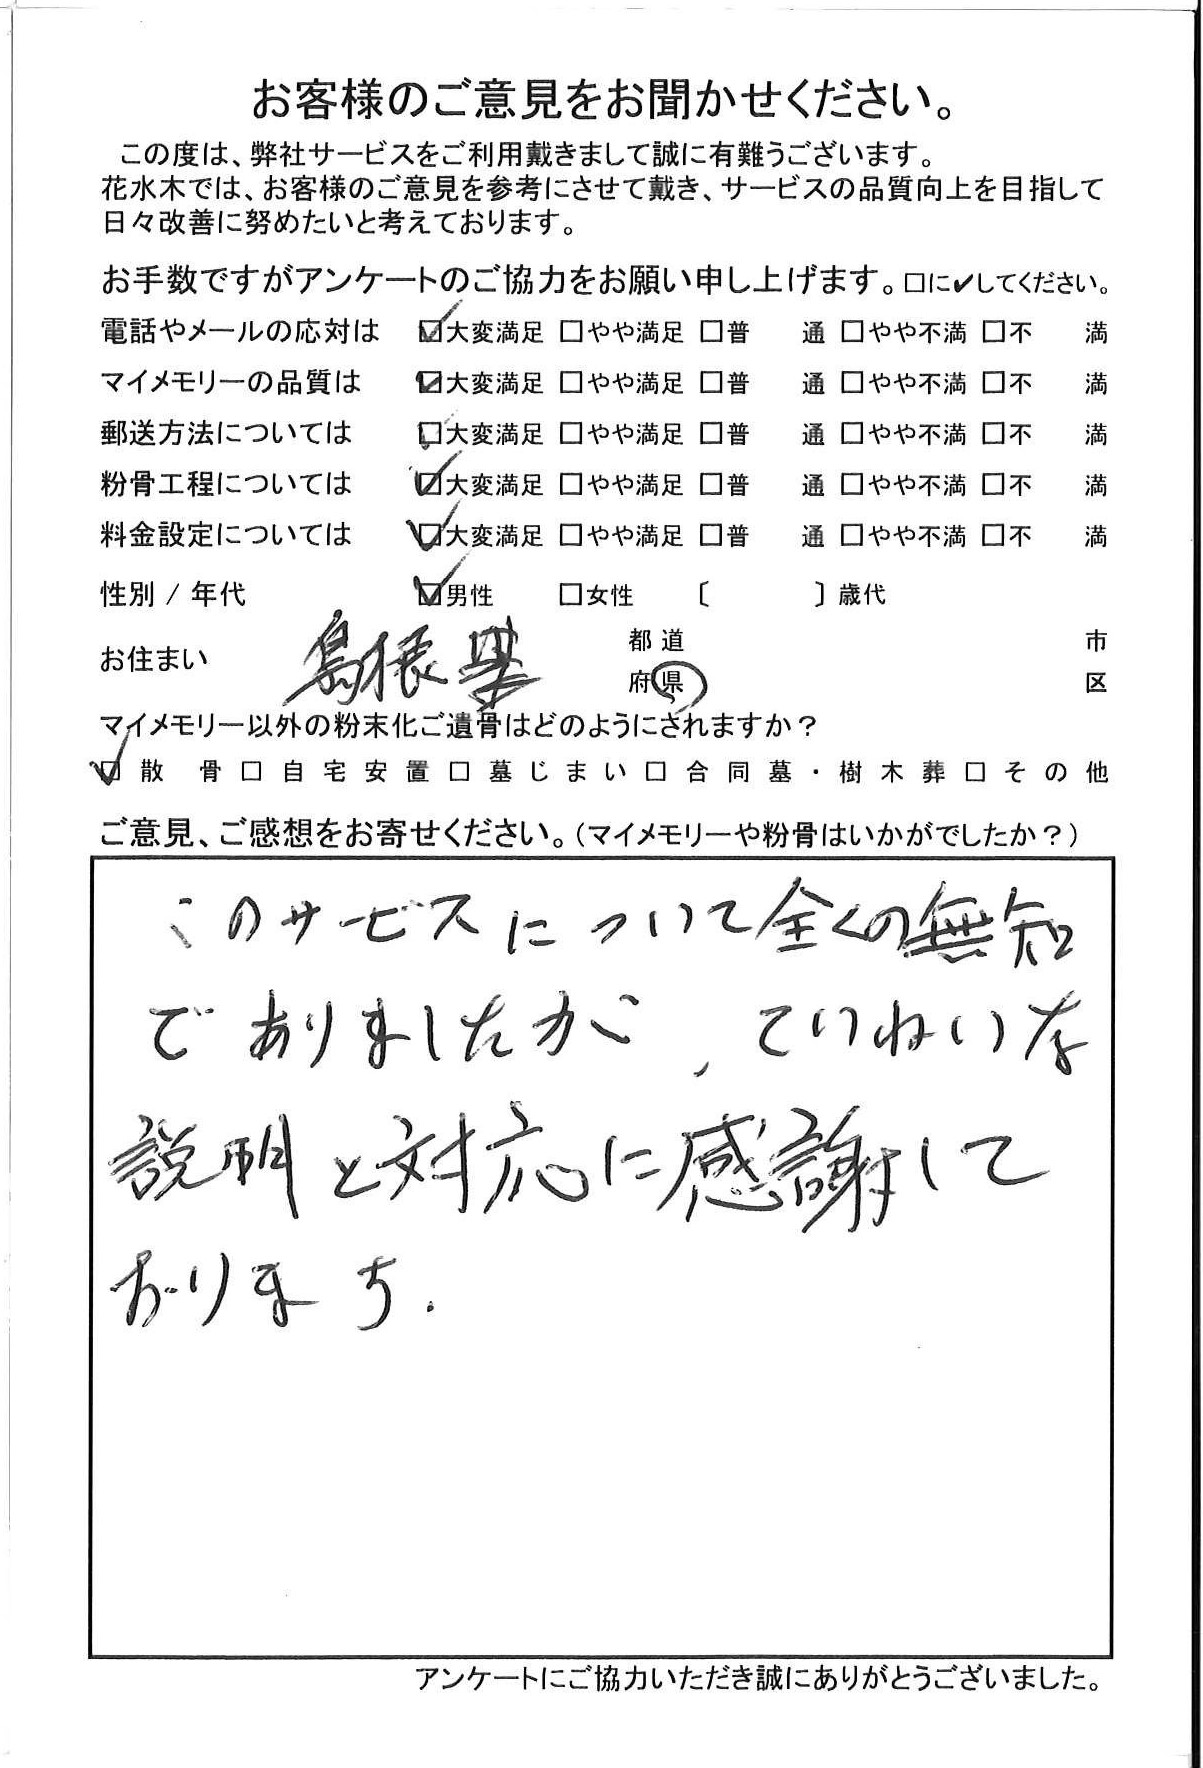 お客様のご意見をお聞かせください。
この度は、弊社サービスをご利用戴きまして誠に有難うございます。
花水木では、お客様のご意見を参考にさせて戴き、サービスの品質向上を目指して
日々改善に努めたいと考えております。
お手数ですがアンケートのご協力をお願い申し上げます。□に✔してください。
電話やメールの応対は ☑大変満足 □やや満足 □普 通 □やや不満 □不 満
マイメモリーの品質は ☑大変満足 □やや満足 □普 通 □やや不満 □不 満
郵送方法については ☑大変満足 □やや満足 □普 通 □やや不満 □不 満
粉骨工程については ☑大変満足 □やや満足 □普 通 □やや不満 □不 満
料金設定については ☑大変満足 □やや満足 □普 通 □やや不満 □不 満
性別 / 年代 ☑男性 □女性 〔 〕歳代
お住まい 島根 都道府県 市区
マイメモリー以外の粉末化ご遺骨はどのようにされますか？
☑散 骨 □自宅安置 □墓じまい □合同墓・樹木葬 □その他
ご意見、ご感想をお寄せください。（マイメモリーや粉骨はいかがでしたか？）
このサービスについて全くの無知
でありましたが、ていねいな
説明と対応に感謝して
おります.
アンケートにご協力いただき誠にありがとうございました。